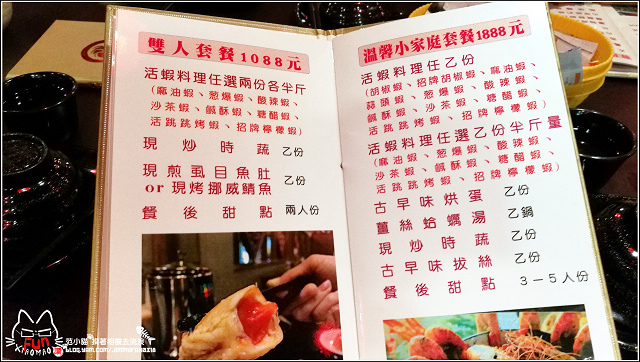 雙人套餐1088元
活蝦料理任選兩份各半斤
(麻油蝦、葱爆蝦、酸辣蝦、
沙茶蝦、鹹酥蝦、糖醋蝦、
活跳跳烤蝦、招牌檸檬蝦)
現炒時蔬 乙份
現煎虱目魚肚
or現烤挪威鯖魚 乙份
餐後甜點 兩人份
溫馨小家庭套餐1888元
活蝦料理任選乙份
(胡椒蝦、招牌胡椒蝦、麻油蝦、
蒜頭蝦、葱爆蝦、酸辣蝦、
鹹酥蝦、沙茶蝦、糖醋蝦、
活跳跳烤蝦、招牌檸檬蝦)
活蝦料理任選乙份半斤量
(麻油蝦、葱爆蝦、酸辣蝦、
沙茶蝦、鹹酥蝦、糖醋蝦、
活跳跳烤蝦、招牌檸檬蝦)
古早味烘蛋 乙份
薑絲蛤蠣湯 乙鍋
現炒時蔬 乙份
古早味拔絲 乙份
餐後甜點 3-5人份
FUN